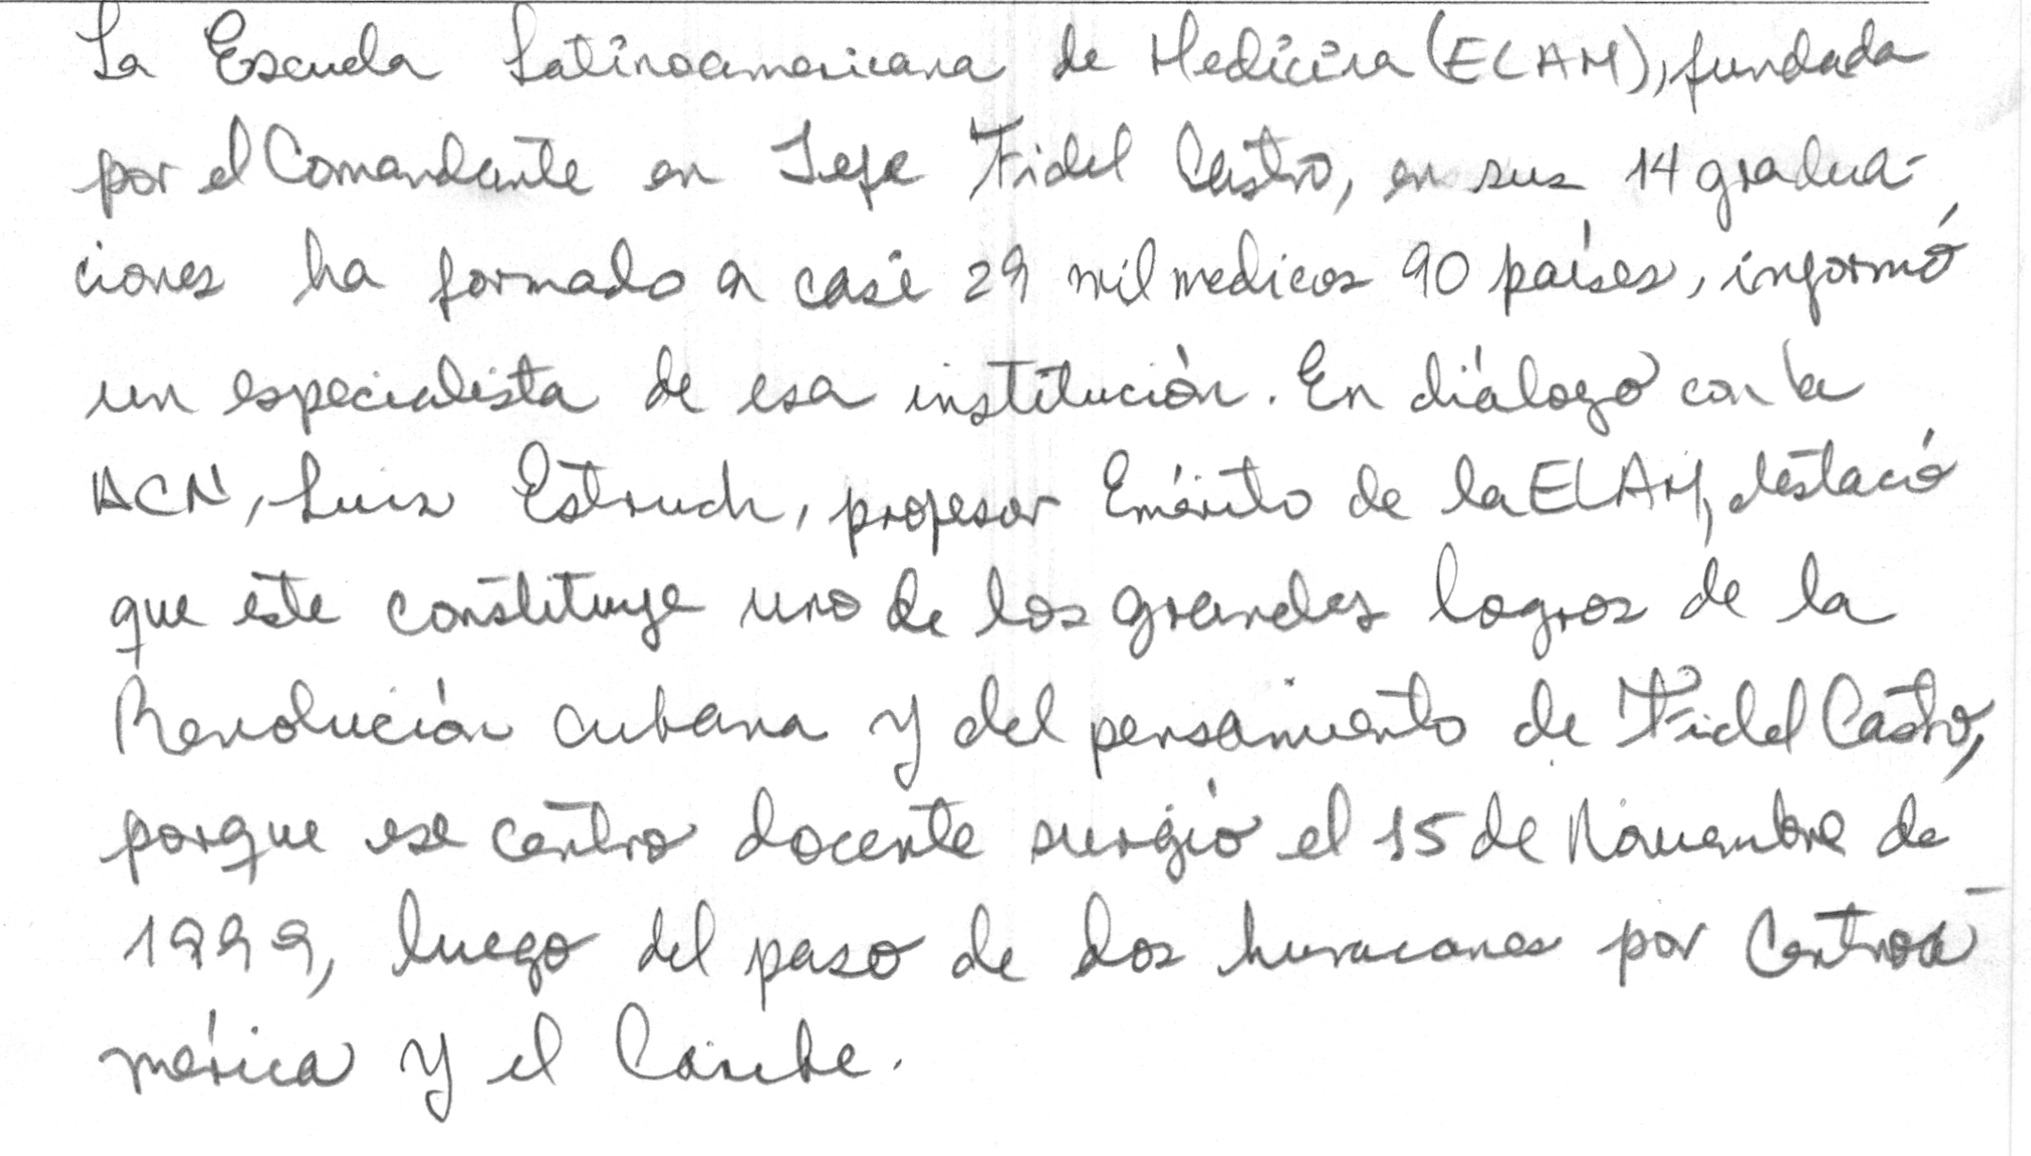 La Escuela Latinoamericana de Medicina (ELAM), fundada
por el Comandante en Jefe Fidel Castro, en sus 14 gradua-
ciones ha formado a casi 29 mil medicos 90 países, informó
un especialista de esa institución. En diálogo con la
ACN, Luis Estruch, profesor Emérito de la ELAM, destacó
que este constituye uno de los grandes logros de la
Revolución cubana y del pensamiento de Fidel Castro,
porque ese centro docente surgió el 15 de Noviembre de
1999, luego del paso de dos huracanes por Centroa-
mérica y el Caribe.